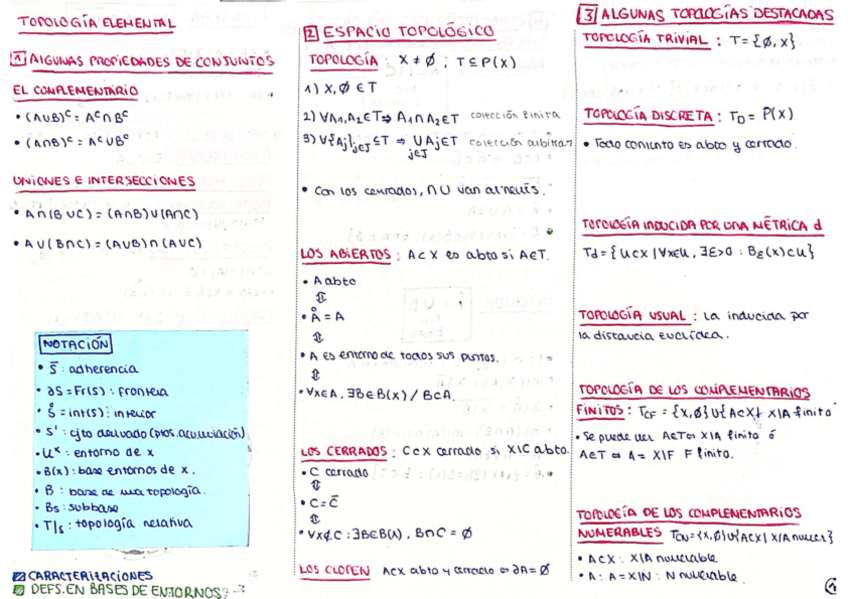 TOPOLOGÍA ELEMENTAL
1 ALGUNAS PROPIEDADES DE CONJUNTOS
EL COMPLEMENTARIO
• (A∪B)ᶜ = Aᶜ∩Bᶜ
• (A∩B)ᶜ = Aᶜ∪Bᶜ
UNIONES E INTERSECCIONES
• A∩(B∪C) = (A∩B)∪(A∩C)
• A∪(B∩C) = (A∪B)∩(A∪C)
NOTACIÓN
• S̄ : adherencia
• ∂S = Fr(S) : frontera
• S̊ = int(S) : interior
• S' : cjto derivado (ptos. acumulación)
• Uˣ : entorno de x
• B(x) : base entornos de x.
• B : base de una topología.
• Bs : subbase
• T|s : topología relativa
CARACTERIZACIONES
DEFS. EN BASES DE ENTORNOS
2 ESPACIO TOPOLÓGICO
TOPOLOGÍA : X ≠ ∅ ; T ⊆ P(X)
1) X, ∅ ∈ T
2) ∀A₁, A₂ ∈ T ⇒ A₁∩A₂ ∈ T colección finita
3) ∀{Aj}j∈J ⊆ T ⇒ ∪Aj ∈ T colección arbitrar
j∈J
• Con los cerrados, ∩ ∪ van al revés.
LOS ABIERTOS : A⊂X es abto si A∈T.
• A abto
⇕
• Å = A
⇕
• A es entorno de todos sus puntos.
⇕
• ∀x∈A, ∃B∈B(x) / B⊂A.
LOS CERRADOS : C⊂X cerrado si X\C abto.
• C cerrado
⇕
• C = C̄
⇕
• ∀x∉C : ∃B∈B(x), B∩C = ∅
LOS CLOPEN A⊂X abto y cerrado ⇔ ∂A = ∅
3 ALGUNAS TOPOLOGÍAS DESTACADAS
TOPOLOGÍA TRIVIAL : T = {∅, X}
TOPOLOGÍA DISCRETA : T_D = P(X)
• Todo conjunto es abto y cerrado.
TOPOLOGÍA INDUCIDA POR UNA MÉTRICA d
Td = {U⊂X | ∀x∈U, ∃ε>0 : Bε(x)⊂U}
TOPOLOGÍA USUAL : La inducida por
la distancia euclídea.
TOPOLOGÍA DE LOS COMPLEMENTARIOS
FINITOS : T_CF = {X, ∅}∪{A⊂X| X\A finito
• Se puede ver A∈T ⇔ X\A finito ó
A∈T ⇔ A = X\F F finito.
TOPOLOGÍA DE LOS COMPLEMENTARIOS
NUMERABLES T_CN = {X, ∅}∪{A⊂X| X\A numer}
• A⊂X : X\A numerable
• A : A = X\N : N numerable.
1